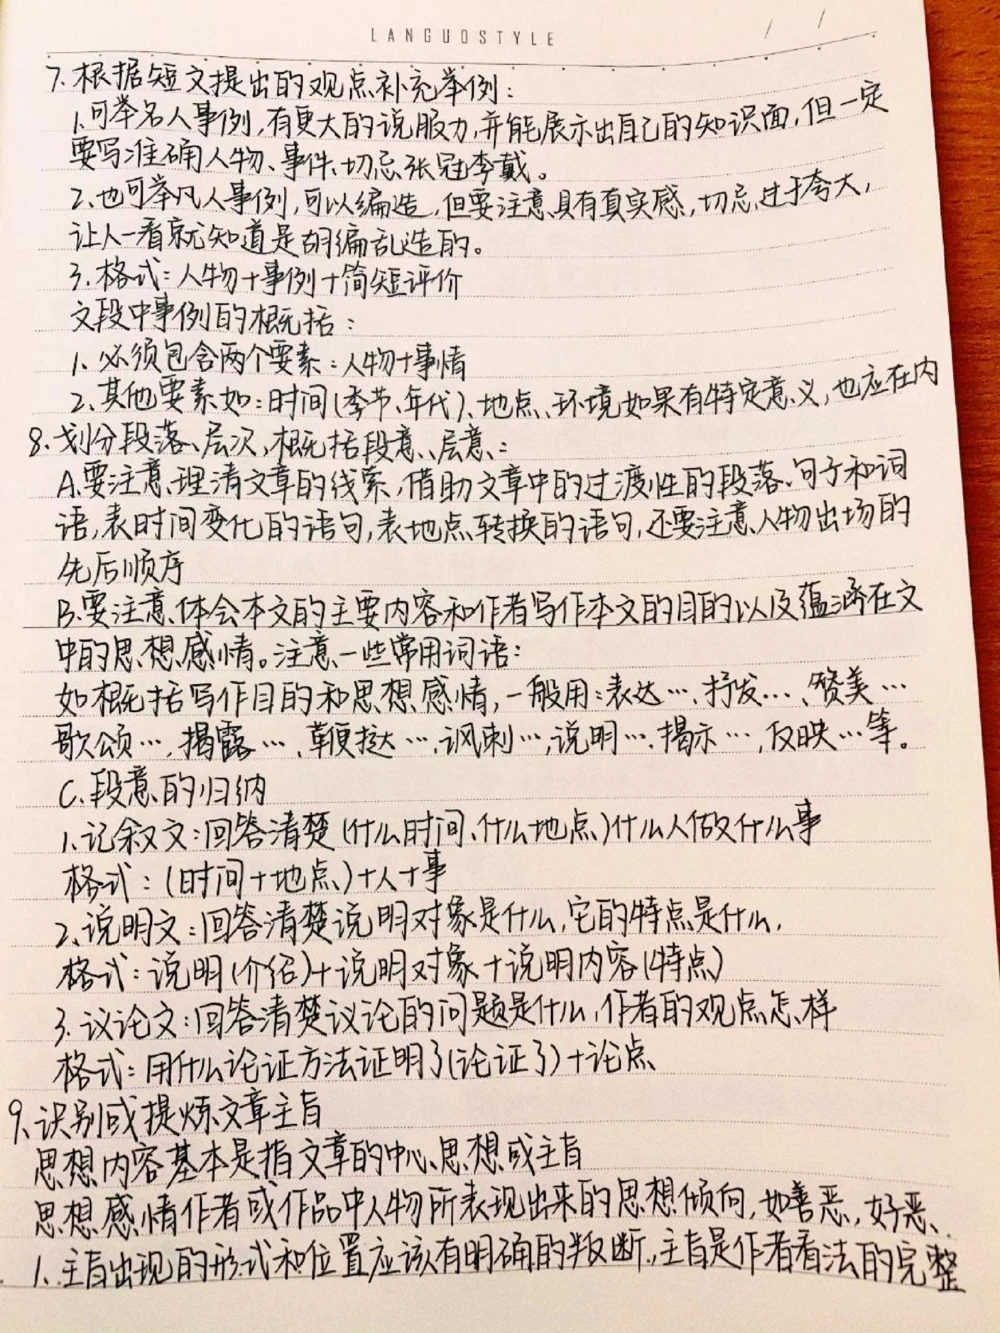 LANGUOSTYLE
7. 根据短文提出的观点补充举例：
1、可举名人事例，有更大的说服力，并能展示出自己的知识面，但一定
要写准确人物、事件、切忌张冠李戴。
2、也可举凡人事例，可以编造，但要注意具有真实感，切忌过于夸大，
让人一看就知道是胡编乱造的。
3、格式：人物+事例+简短评价
文段中事例的概括：
1、必须包含两个要素：人物+事情
2、其他要素如：时间(季节、年代)、地点、环境如果有特定意义，也应在内
8. 划分段落、层次，概括段意、层意：
A.要注意理清文章的线索，借助文章中的过渡性的段落、句子和词
语，表时间变化的语句，表地点转换的语句，还要注意人物出场的
先后顺序
B.要注意体会本文的主要内容和作者写作本文的目的以及蕴涵在文
中的思想感情。注意一些常用词语：
如概括写作目的和思想感情，一般用：表达…、抒发…、赞美…
歌颂…、揭露…、鞭挞…，讽刺…，说明…、揭示…，反映…等。
C、段意的归纳
1、记叙文：回答清楚(什么时间、什么地点)什么人做什么事
格式：(时间+地点)+人+事
2、说明文：回答清楚说明对象是什么，它的特点是什么，
格式：说明(介绍)+说明对象+说明内容(特点)
3. 议论文：回答清楚议论的问题是什么，作者的观点怎样
格式：用什么论证方法证明了(论证了)+论点
9、识别或提炼文章主旨
思想内容基本是指文章的中心思想或主旨
思想感情作者或作品中人物所表现出来的思想倾向，如善恶，好恶、
1、主旨出现的形式和位置应该有明确的判断，主旨是作者看法的完整